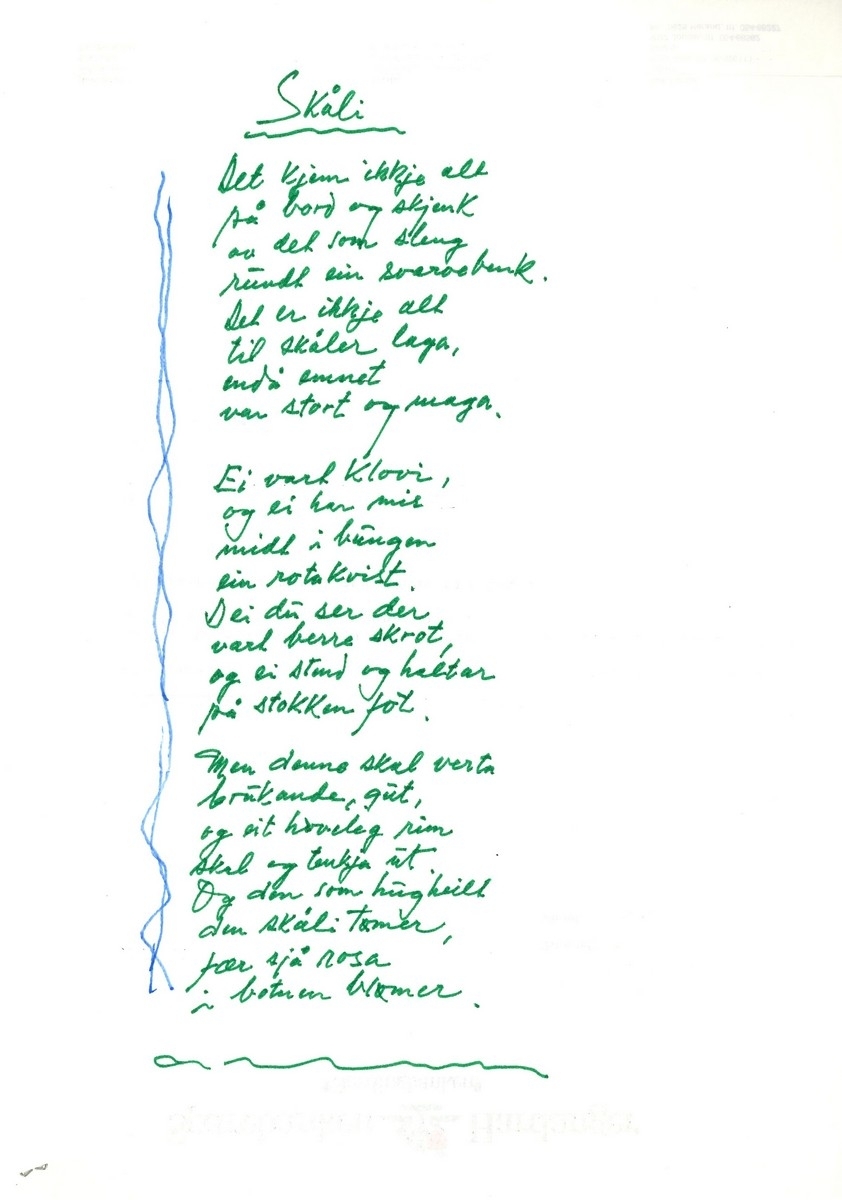 Skåli
Det kjem ikkje alt
på bord og skjenk
av det som sleng
rundt ein svarvebenk.
Det er ikkje alt
til skåler laga,
endå emnet
var stort og maga.
Ei vart klovi,
og ei har mist
midt i bungen
ein rotakvist.
Dei du ser der
vart berre skrot,
og ei stend og haltar
på stokken fot.
Men denne skal verta
brukande, gut,
og eit høveleg rim
skal eg tenkja ut.
Og den som hugheilt
den skåli tømer,
fær sjå rosa
i botnen blømer.
Sparebanken Hardanger